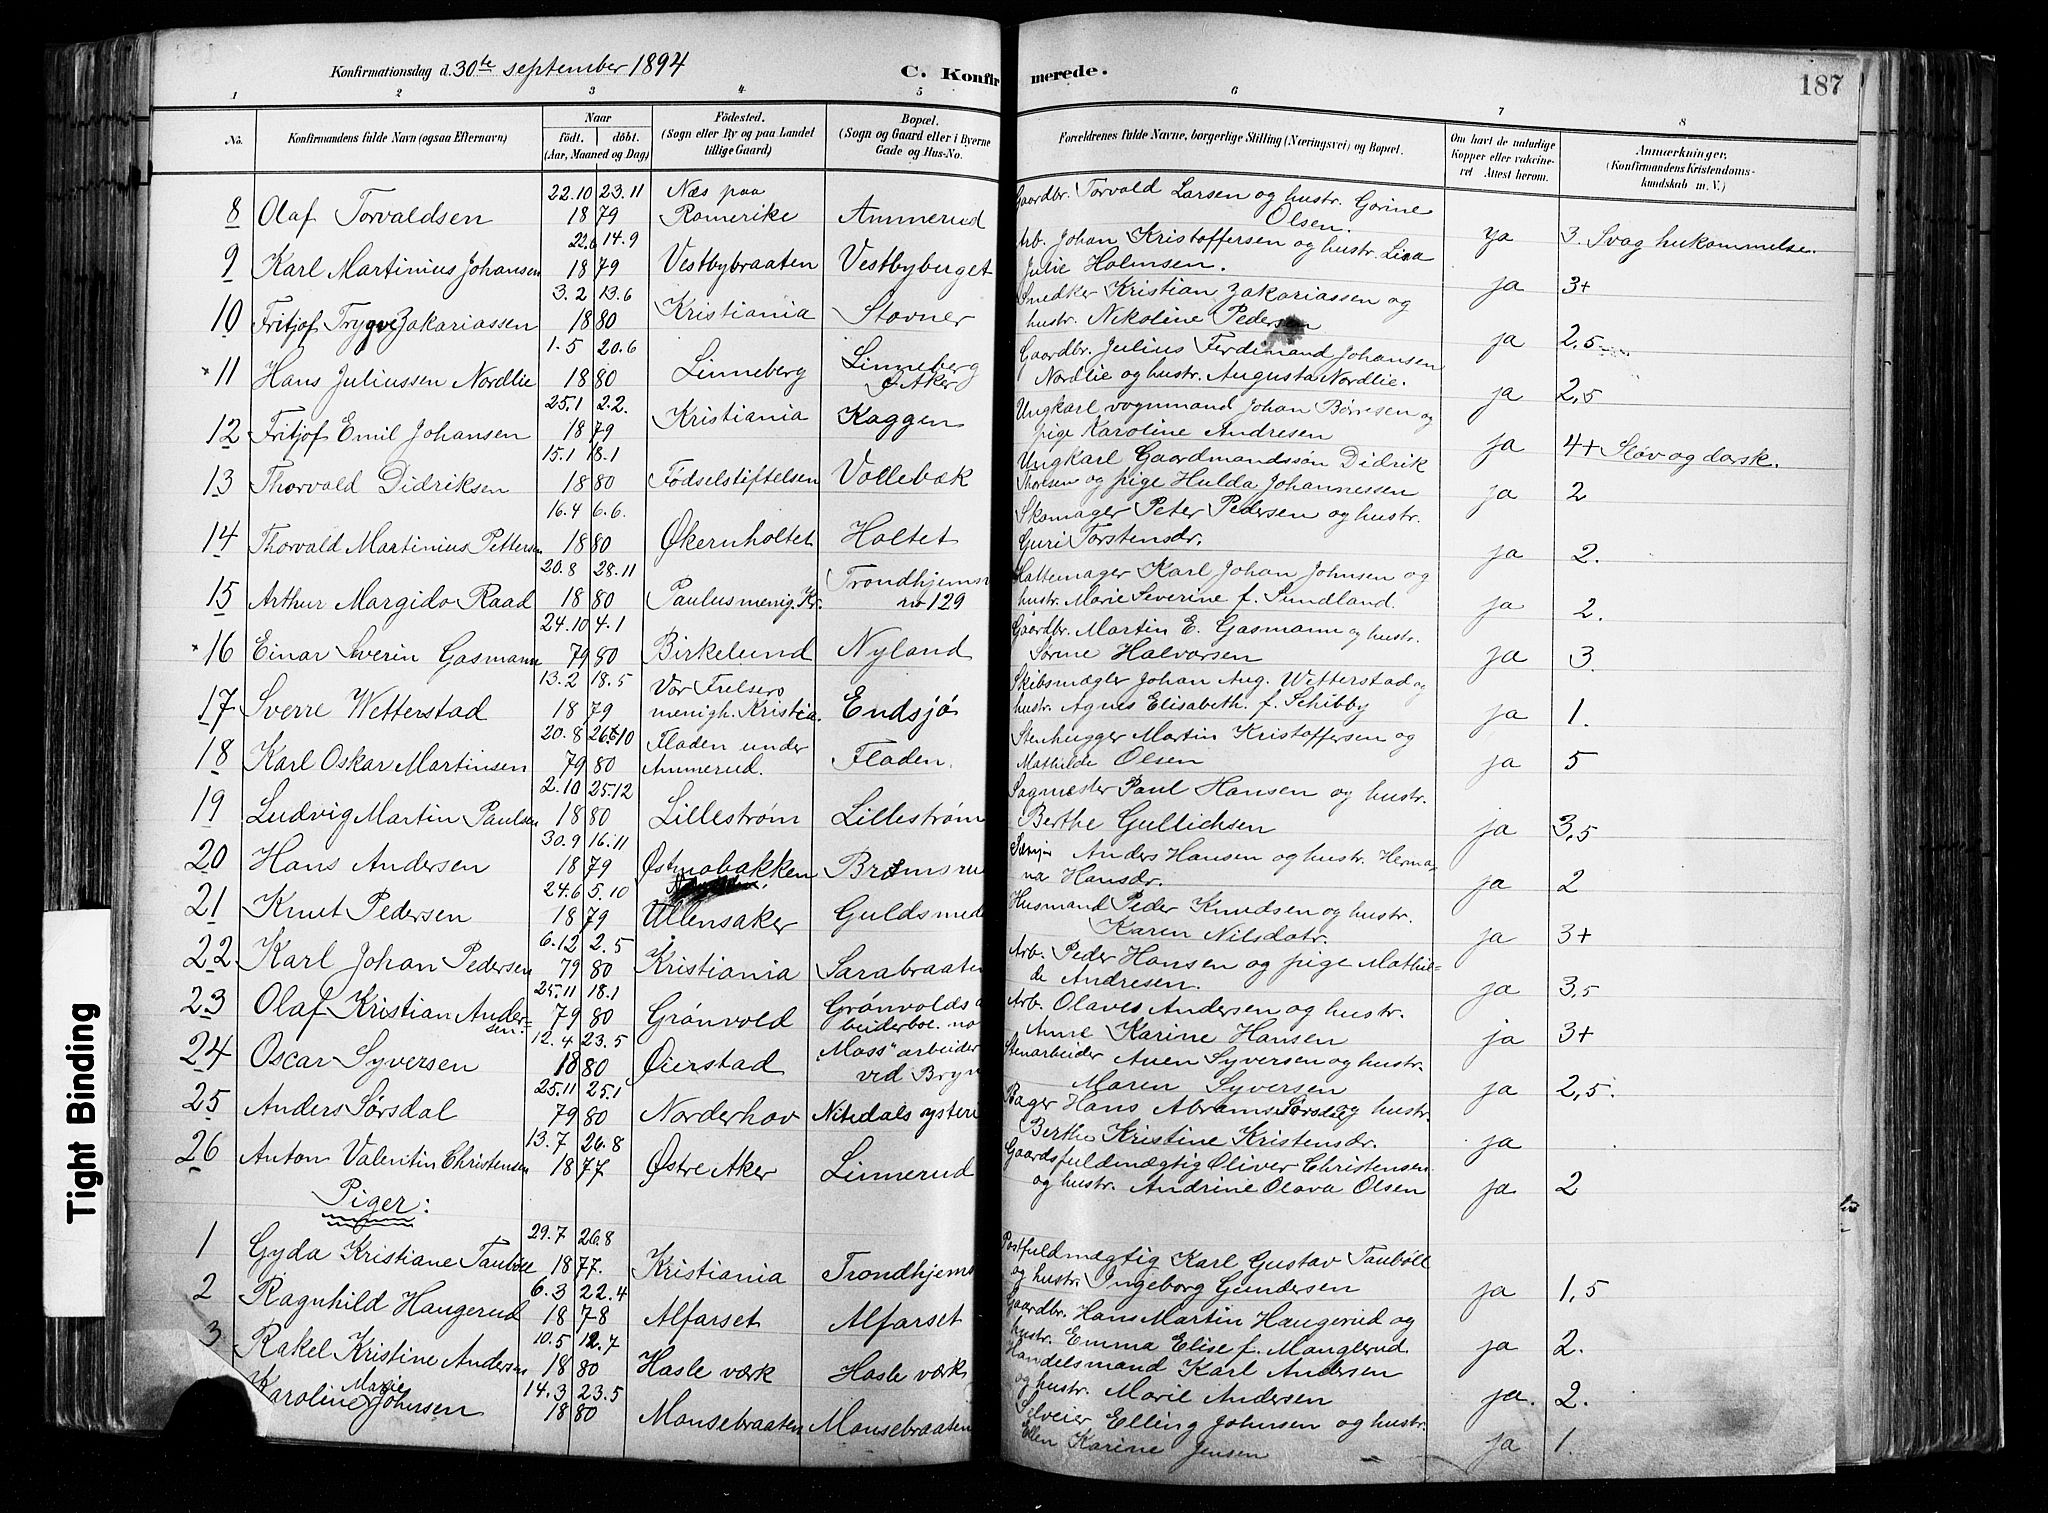 Konfirmationsdag d. 30te september 1894
C. Konfirmerede.
187
1 2 3 4 5 6 7 8
No. Konfirmandens fulde Navn (ogsaa Efternavn) Naar født. døbt. (Aar, Maaned og Dag) Fødested. (Sogn eller By og paa Landet tillige Gaard) Bopæl. (Sogn og Gaard eller i Byerne Gade og Hus-No. Forældrenes fulde Navne, borgerlige Stilling (Næringsvei) og Bopæl. Om havt de naturlige Kopper eller vaccineret Attest herom. Anmærkninger. (Konfirmandens Kristendomskundskab m. V.)
8 Olaf Torvaldsen 22.10 23.11 1879 Næs paa Romerike Ammerud Gaardbr. Torvald Larsen og hustr. Gorine Olsen. ja 3. Svag hukommelse.
9 Karl Martinius Johansen 22.6 14.9 1879 Vestbybraaten Vestbyberget Arb. Johan Kristoffersen og hustr. Lisa Julie Holmsen. ja 3+
10 Fritjof Trygve Zakariassen 3.2 13.6 1880 Kristiania Stovner Snedker Kristian Zakariassen og hustr. Nikoline Pedersen ja 2,5
11 Hans Juliussen Nordlie 1.5 20.6 1880 Linneberg Linneberg Ø. Aker Gaardbr. Julius Ferdinand Johansen Nordlie og hustr. Augusta Nordlie. ja 2,5
12 Fritjof Emil Johansen 25.1 2.2. 1879 Kristiania Kaggen Ungkarl vognmand Johan Børresen og pige Karoline Andresen ja 4+ Sløv og dorsk.
13 Thorvald Didriksen 15.1 18.1 1880 Fødselstiftelsen Vollebæk Ungkarl Gaardmandssøn Didrik Thoresen og pige Hulda Johannessen ja 2
14 Thorvald Martinius Pettersen 16.4 6.6. 1880 Økernholtet Holtet Skomager Peter Pedersen og hustr. Guri Torstensdr. ja 2.
15 Arthur Margido Raad 20.8 28.11 1880 Paulus menig. Kr. Trondhjems no 129 Hattemager Karl Johan Johnsen og hustr. Marie Severine f. Sundland. ja 2.
16 Einar Sverin Gasmann 24.10 4.1 79 80 Birkelund Nyland Gaardbr. Martin E. Gasmann og hustr. Sørine Halvorsen ja 3.
17 Sverre Wetterstad 13.2 18.5 1879 Vor Frelsers menigh. Kristia. Endsjø Skibsmægler Johan Aug. Wetterstad og hustr. Agnes Elisabeth. f. Schibby ja 1.
18 Karl Oskar Martinsen 20.8 26.10 79 80 Fladen under Ammerud. Fladen. Stenhugger Martin Kristoffersen og Mathilde Olsen ja 5
19 Ludvig Martin Paulsen 2.10 25.12 1880 Lillestrøm Lillestrøm Sagmester Paul Hansen og hustr. Berthe Gullichsen ja 3,5
20 Hans Andersen 30.9 16.11 1879 Østmobakken Anders Hansen og hustr. Hermana Hansdr. ja 2
21 Knut Pedersen 24.6 5.10 1879 Ullensaker Guldsmed Husmand Peder Knudsen og hustr. Karen Nilsdatr. ja 3+
22 Karl Johan Pedersen 6.12 2.5 79 80 Kristiania Sarabraaten Arb. Peder Hansen og pige Mathilde Andresen. ja 3,5
23 Olaf Kristian Andersen. 25.11 18.1 79 80 Grønvold Grønvolds beiderbol. no Arb. Olaves Andersen og hustr. Anne Karine Hansen ja 3+
24 Oscar Syversen 12.4 23.5 1880 Øierstad "Moss" arbeider ved Bryn Stenarbeider Auen Syversen og hustr. Maren Syversen ja 2,5.
25 Anders Sørsdal 25.11 25.1 79 80 Norderhov Nitedals ysteri Bager Hans Abrams Sørsdal og hustr. Berthe Kristine Kristensdr. ja
26 Anton Valentin Christensen 13.7 26.8 1877 Østre Aker Linnerud Gaardsfuldmægtig Oliver Christensen og hustr. Andrine Olava Olsen ja 2
Piger:
1 Gyda Kristiane Taubøll 29.7 26.8 1877. Kristiania Trondhjems Postfuldmægtig Karl Gustav Taubøll og hustr. Ingeborg Gundersen ja 1,5
2 Ragnhild Haugerud 6.3 22.4 1878 Alfarset Alfarset Gaardbr. Hans Martin Haugerud og hustr. Emma Elise f. Manglerud. ja 2.
3 Rakel Kristine Andersen 10.5 12.7 1880 Hasle værk Hasle værk Handelsmand Karl Andersen og hustr. Marie Andersen ja. 2.
Karoline Marie Johnsen 14.3 23.5 1880 Monsebraaten Monsebraaten Selveier Elling Johnsen og hustr. Ellen Karine Jensen ja 1.
Tight Binding